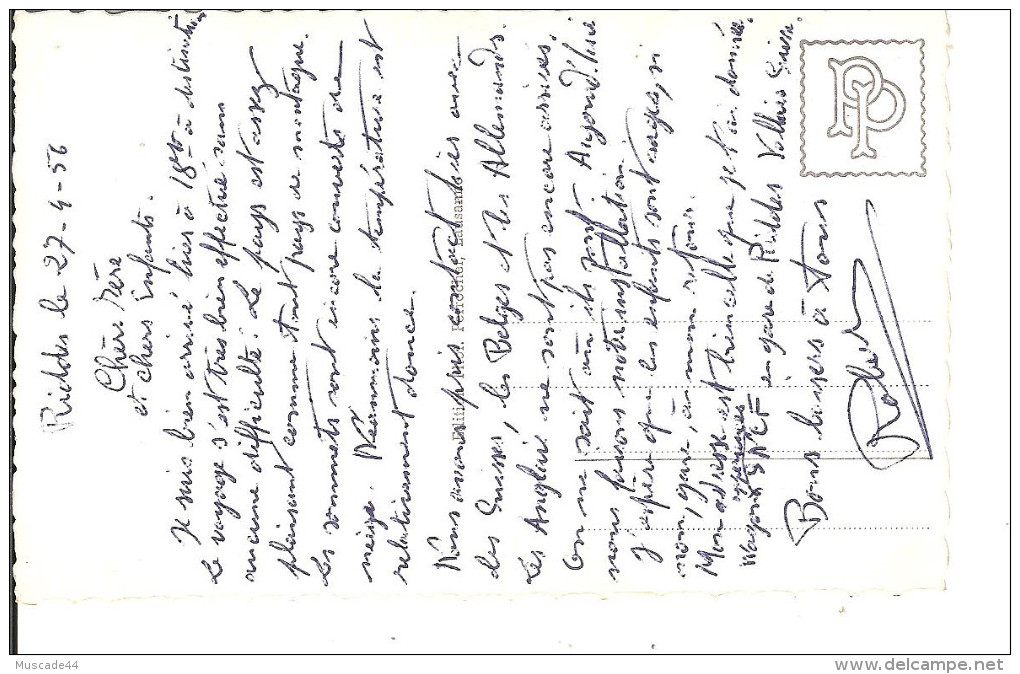 Riddes le 27-4-56
Chère Mère
et chers enfants.
Je suis bien arrivé hier à 18h à destination
Le voyage s'est très bien effectué sans
aucune difficulté. Le pays est assez
plaisant comme tout pays de montagne.
Les sommets sont encore couverts de
neige. Néanmoins la température est
relativement douce.
Nous avons pris contact hier avec
des Suisses, les Belges et les Allemands.
Les Anglais ne sont pas encore arrivés.
On ne sait où ils sont. Aujourd'hui
nous faisons notre installation.
J'espère que les enfants sont sages, si
non, gare, à mon retour.
Mon adresse est bien celle que je t'ai donnée
Wagons SNCF en gare de Riddes Valais Suisse.
Bons baisers à tous
Robert
Perrochet, Lausanne
PP
Muscade44
www.delcampe.net